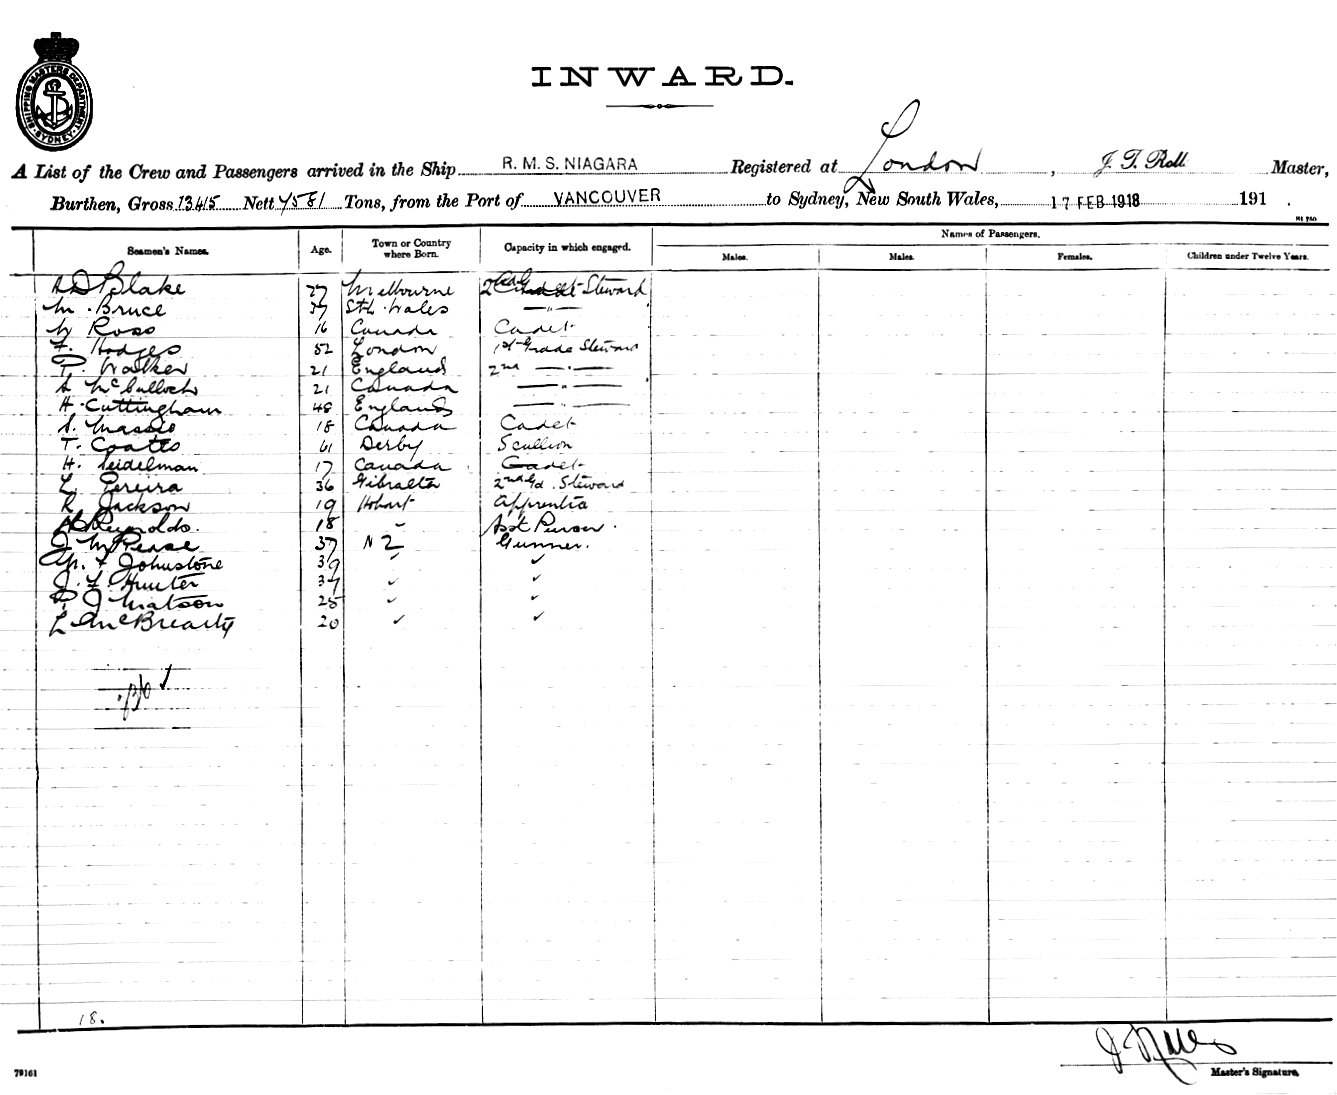 SHIPPING MASTERS DEPARTMENT SYDNEY
INWARD.
A List of the Crew and Passengers arrived in the Ship R.M.S. NIAGARA Registered at London, J. T. Roll Master,
Burthen, Gross 13415 Nett 7581 Tons, from the Port of VANCOUVER to Sydney, New South Wales, 17 FEB 1918 191 .
Names of Passengers.
Seamen's Names. Age. Town or Country where Born. Capacity in which engaged. Males. Males. Females. Children under Twelve Years.
Blake 27 Melbourne 2nd Steward
M. Bruce 37 Sth Wales —〃—
W Ross 16 Canada Cadet
F. Hodges 52 London 1st Grade Steward
P. Walker 21 England 2nd —〃—
A McCulloch 21 Canada —〃—
H. Cuttingham 48 England —〃—
S. Massie 18 Canada Cadet
T. Coates 61 Derby Scullion
H. Seidelman 17 Canada Cadet
L. Pereira 36 Gibralta 2nd Gd. Steward
R. Jackson 19 Hobart Apprentice
Reynolds. 18 〃 Asst Purser.
J M Pease 37 NZ Gunner.
Johnstone 39 ✓ ✓
J. F. Hunter 37 ✓ ✓
P. J Matson 25 ✓ ✓
L McBrearty 20 ✓ ✓
18.
Master's Signature.
79161